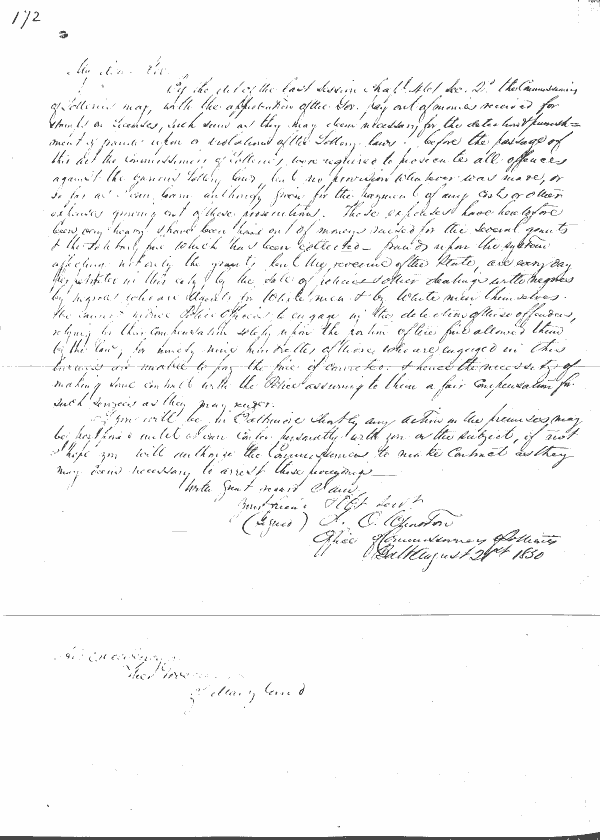 172
My dear Sir,
By the act of the last session Chapt. 461 Sec. 2d the Commissioners
of Lotteries may, with the approbation of the Gov. pay out of monies received for
Licenses, such sums as they may deem necessary for the detection & punish=
ment of frauds upon or violations of the Lottery laws. Before the passage of
this act the Commissioners of Lotteries, were required to prosecute all offences
against the general Lottery law, but no provision whatever was made, or
so far as I can learn authority given for the payment of any costs or other
expenses growing out of these prosecutions. These expenses have heretofore
been very heavy & have been paid out of moneys raised for the several grants
& the solitary fine which has been collected — frauds upon the system
affecting not only the grants but the revenue of the State, are every day
in this city by the sale of policies & other dealings with negroes
by negroes who are agents for white men & by white men themselves.
We cannot induce Police Officers to engage in the detection of these offenders,
relying for their compensation solely upon the portion of the fine allowed them
by the law, for ninety nine hundredths of those, who are engaged in this
business are unable to pay the fine if convicted. & hence the necessity of
making some contract with the Police assuring to them a fair compensation for
such services as they may render.
If you will be in Baltimore shortly any action in the premises may
be postponed until I can confer personally with you on the subject, if not
I hope you will authorize the Commissioners to make contract as they
may deem necessary to arrest these
With great regard I am
Your friend & Obt Servt
(Signed)
Office of Commissioners of Lotteries
Balt August 21st 1850
His Excellency
of Maryland